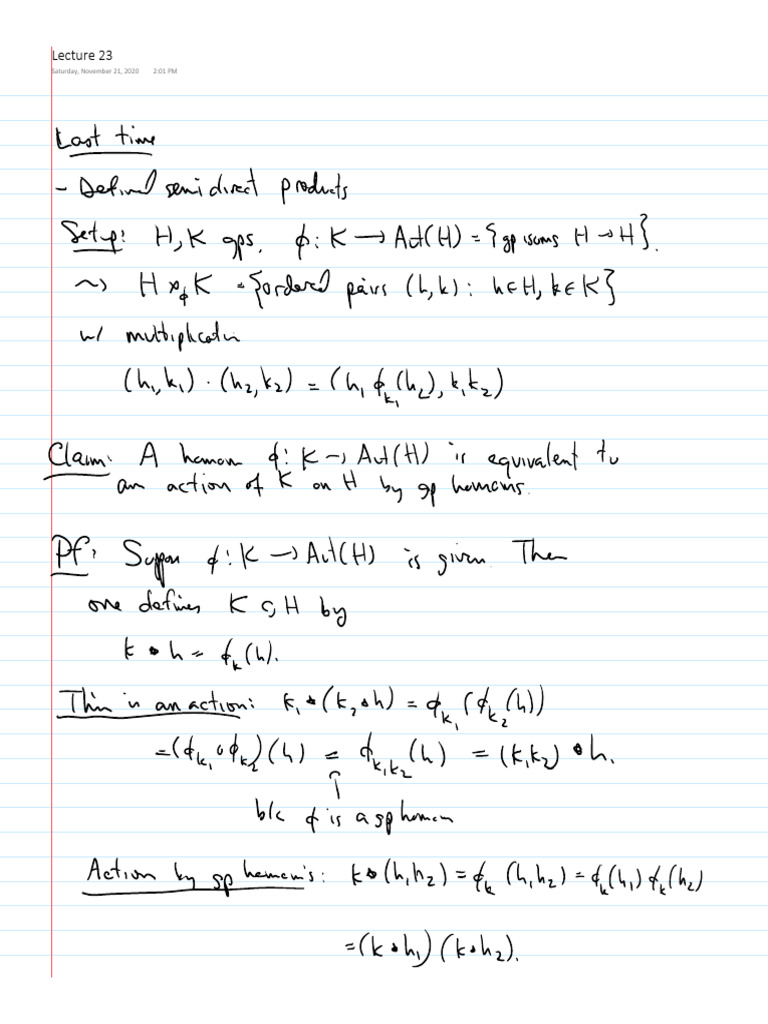 Lecture 23
Saturday, November 21, 2020 2:01 PM
Last time
- Defined semidirect products
Setup: H, K gps, ϕ: K → Aut(H) = {gp isoms H → H}.
⇝ H ⋊_ϕ K = {ordered pairs (h,k) : h∈H, k∈K}
w/ multiplication
(h₁,k₁) · (h₂,k₂) = (h₁ ϕ_{k₁}(h₂), k₁k₂)
Claim: A homom ϕ: K → Aut(H) is equivalent to
an action of K on H by gp homoms.
Pf: Suppose ϕ: K → Aut(H) is given. Then
one defines K ↻ H by
k • h = ϕ_k(h).
This is an action: k₁ • (k₂ • h) = ϕ_{k₁}(ϕ_{k₂}(h))
= (ϕ_{k₁} ∘ ϕ_{k₂})(h) = ϕ_{k₁k₂}(h) = (k₁k₂) • h.
⇑
b/c ϕ is a gp homom
Action by gp homom's: k • (h₁h₂) = ϕ_k(h₁h₂) = ϕ_k(h₁) ϕ_k(h₂)
= (k • h₁)(k • h₂).